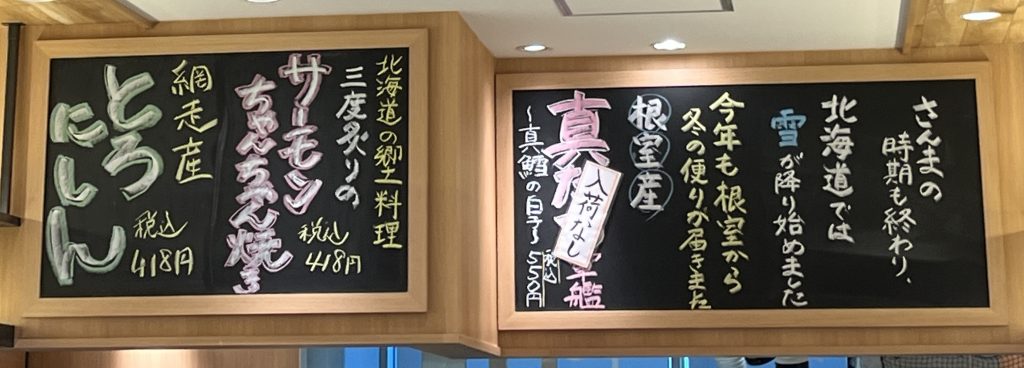 北海道の郷土料理
三度炙りの
サーモン
ちゃんちゃん焼き
税込
418円
網走産
とろ
にしん
税込
418円
さんまの
時期も終わり、
北海道では
雪が降り始めました
今年も根室から
冬の便りが届きました
根室産
真た
入荷なし
軍艦
〜真鱈の白子〜
税込
550円